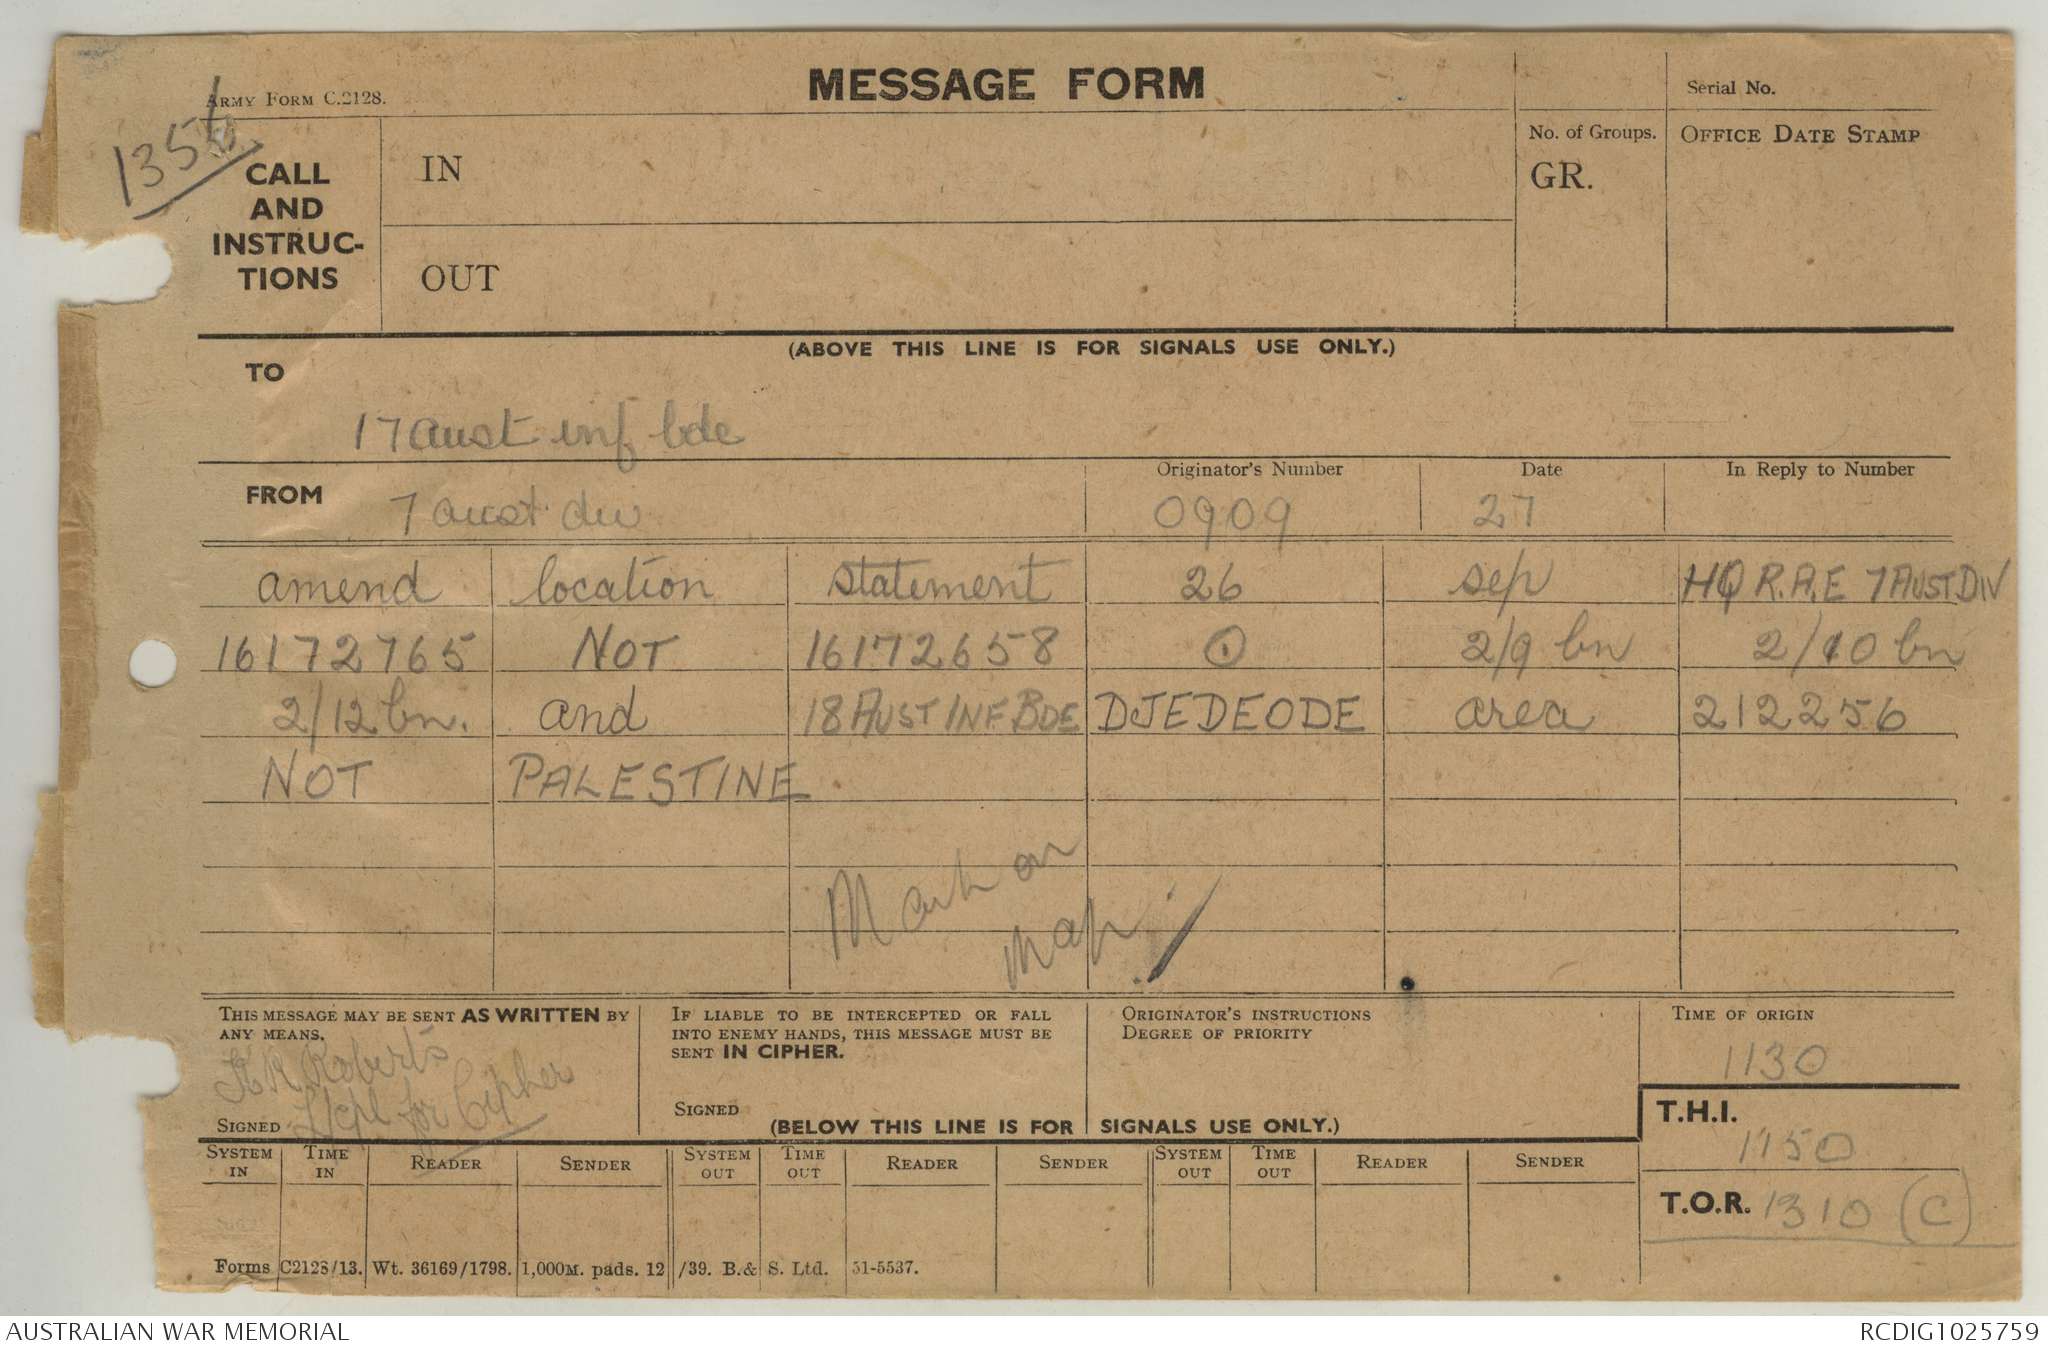 ARMY FORM C.2128.
MESSAGE FORM
Serial No.
1356
CALL
AND
INSTRUC-
TIONS
IN
OUT
No. of Groups.
GR.
OFFICE DATE STAMP
(ABOVE THIS LINE IS FOR SIGNALS USE ONLY.)
TO
17 aust inf bde
FROM
7 aust div
Originator's Number
0909
Date
27
In Reply to Number
amend location statement 26 sep HQ R.A.E 7 AUST DIV
16172765 NOT 16172658 ⊙ 2/9 bn 2/10 bn
2/12 bn. and 18 AUST INF BDE DJEDEODE area 212256
NOT PALESTINE
Mark on
map
THIS MESSAGE MAY BE SENT AS WRITTEN BY
ANY MEANS.
K R Roberts
L/cpl for Cipher
SIGNED
IF LIABLE TO BE INTERCEPTED OR FALL
INTO ENEMY HANDS, THIS MESSAGE MUST BE
SENT IN CIPHER.
SIGNED
ORIGINATOR'S INSTRUCTIONS
DEGREE OF PRIORITY
TIME OF ORIGIN
1130
T.H.I.
1150
T.O.R. 1310 (C)
(BELOW THIS LINE IS FOR SIGNALS USE ONLY.)
SYSTEM IN TIME IN READER SENDER SYSTEM OUT TIME OUT READER SENDER SYSTEM OUT TIME OUT READER SENDER
Forms C2128/13. Wt. 36169/1798. 1,000M. pads. 12/39. B.& S. Ltd. 51-5537.
AUSTRALIAN WAR MEMORIAL
RCDIG1025759